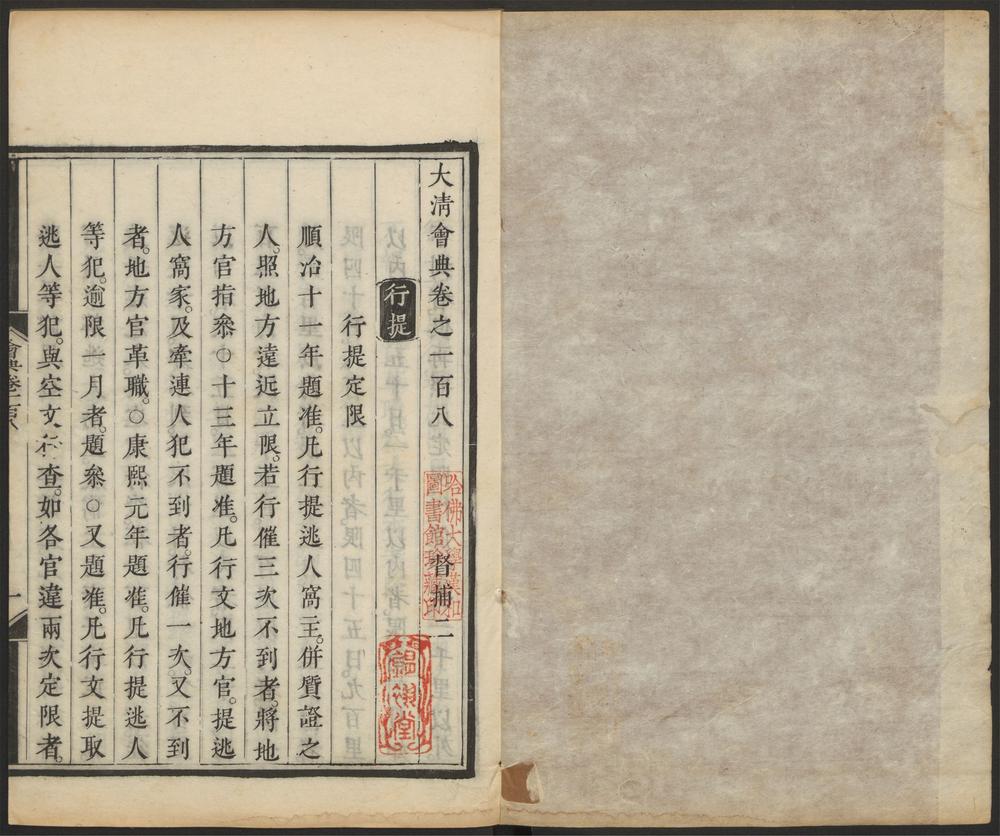 大清會典卷之一百八
督捕二
哈佛大學漢和
圖書館珍藏印
行提
行提定限
順治十一年題准。凡行提逃人窩主。併質證之
人。照地方遠近立限。若行催三次不到者。將地
方官指叅○十三年題准。凡行文地方官。提逃
人窩家。及牽連人犯不到者。行催一次。又不到
者。地方官革職。○康熙元年題准。凡行提逃人
等犯。逾限一月者。題叅○又題准。凡行文提取
逃人等犯。與空文行查。如各官違兩次定限者。
會典卷一百八
一